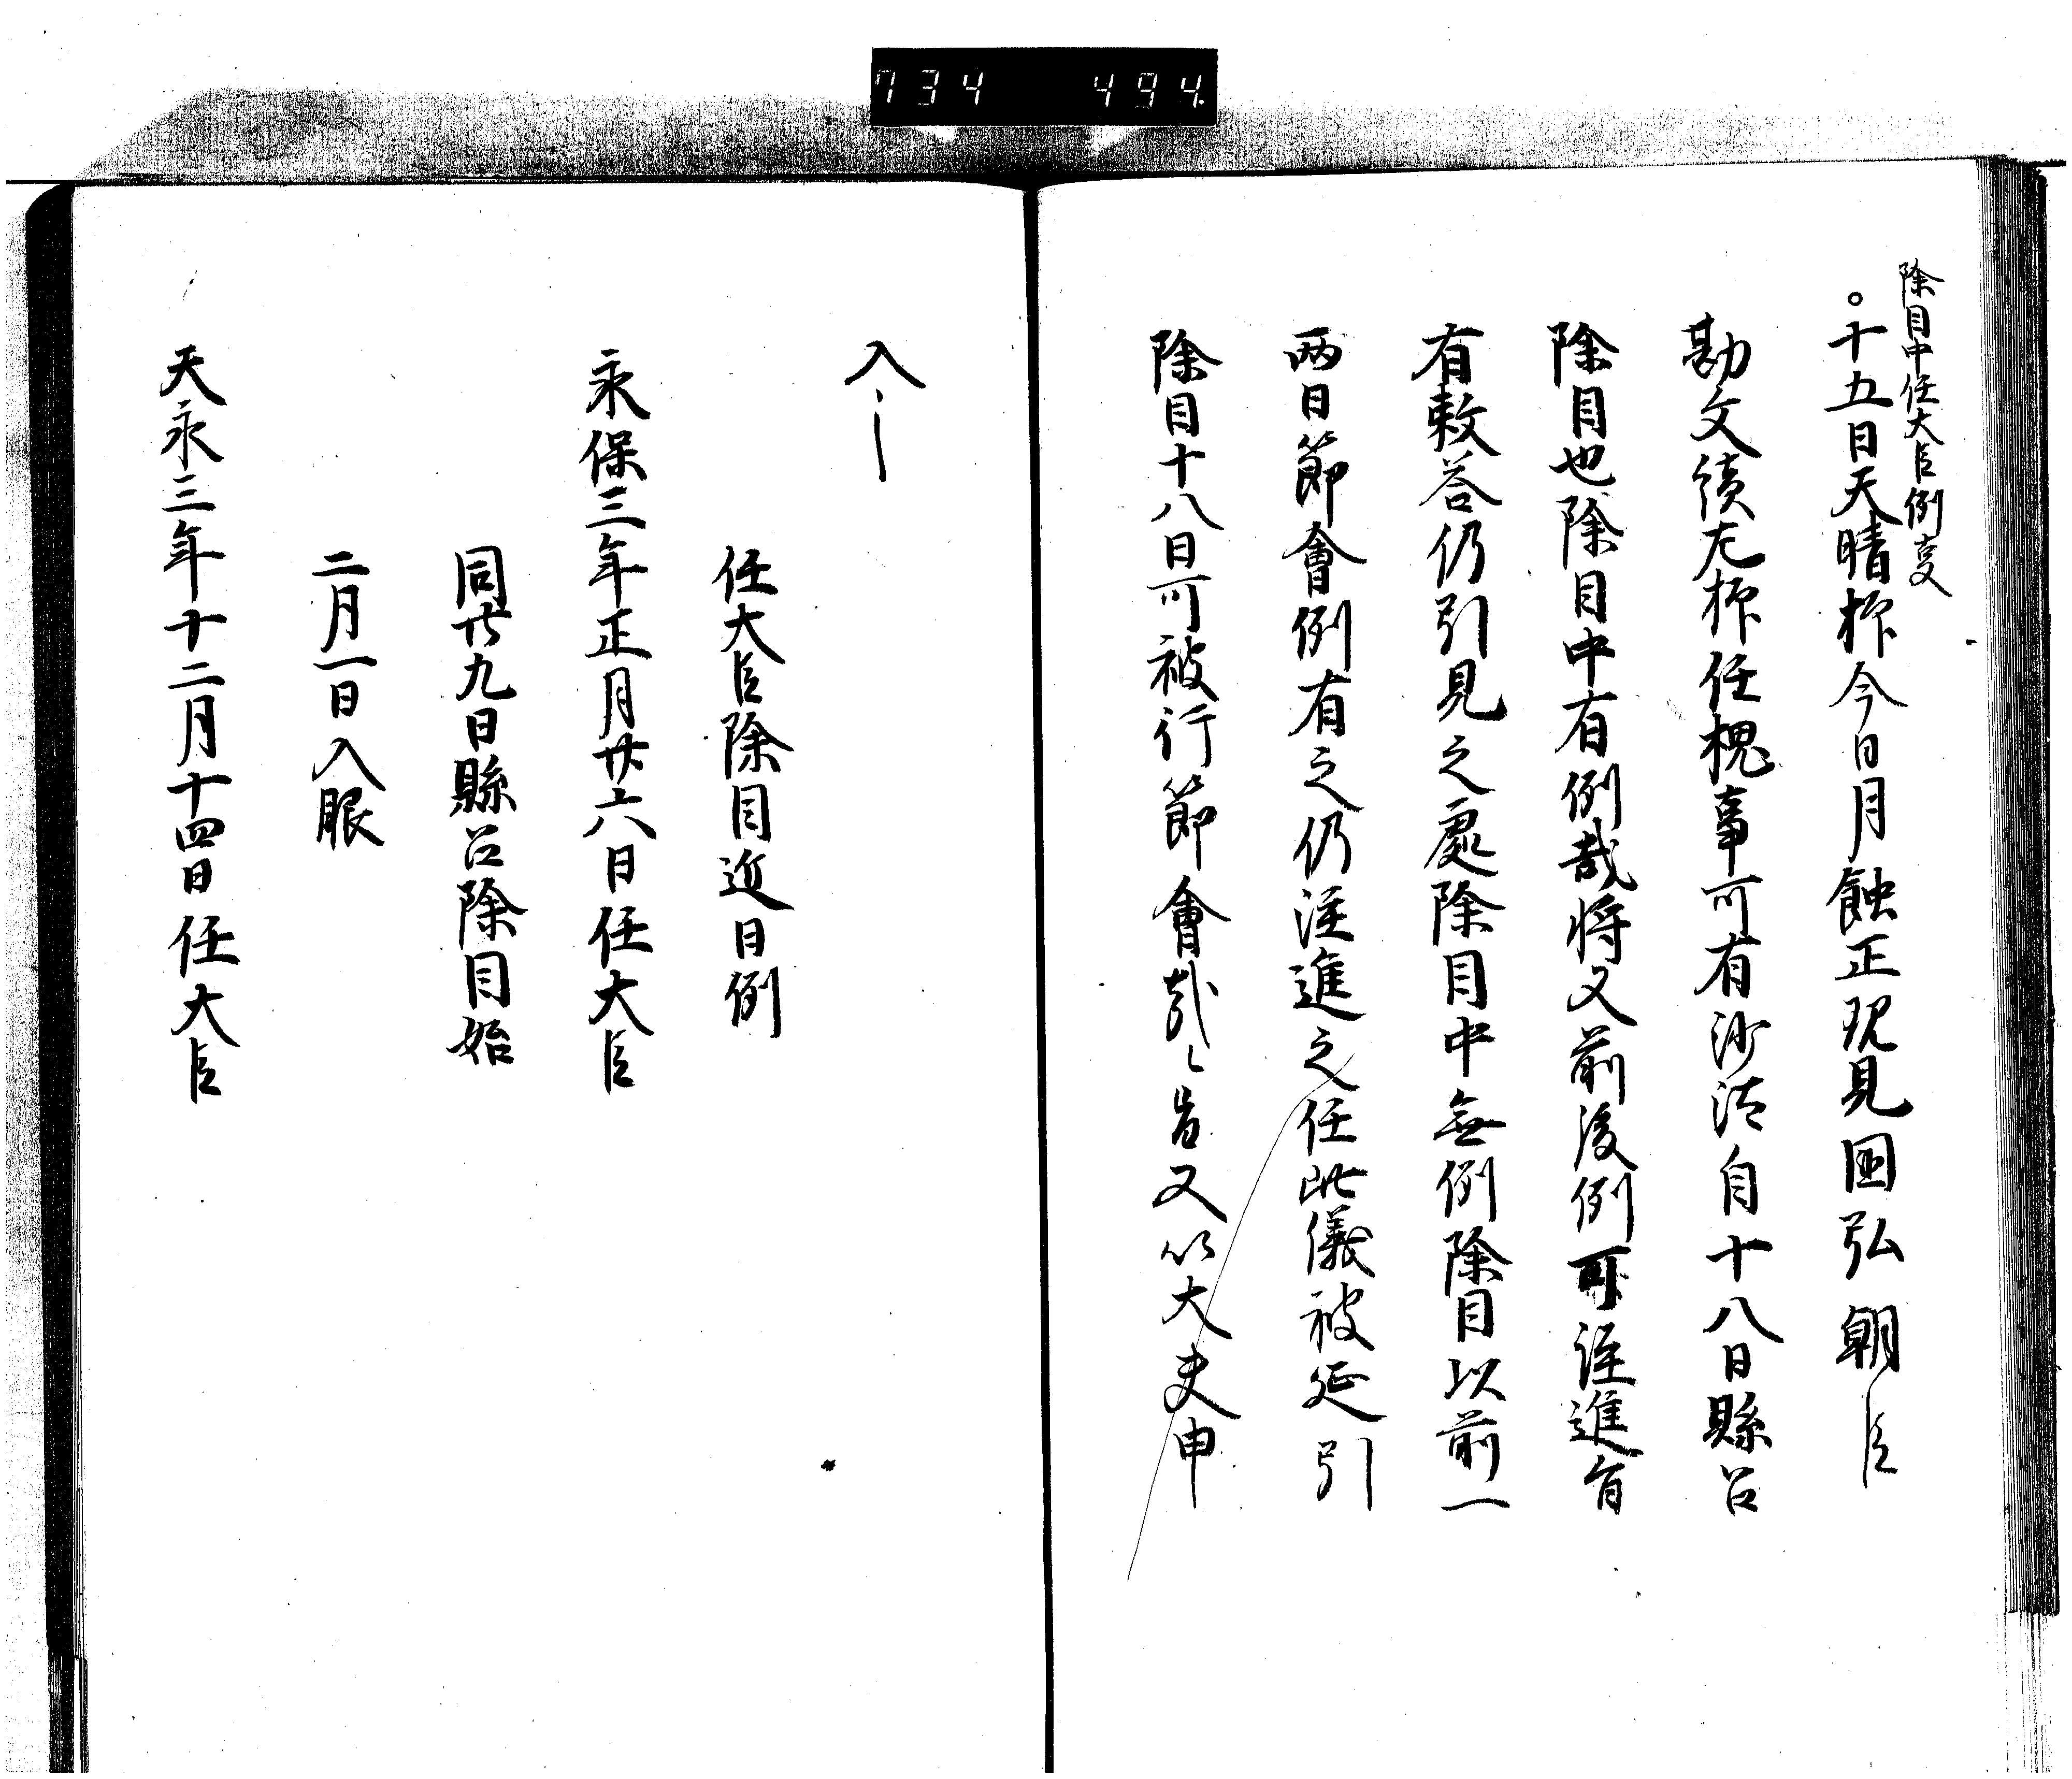 734 494
除目中任大臣例事
。十五日天晴抑今日月蝕正現見国弘朝臣
勘文続左抑任槐事可有沙汰自十八日縣召
除目也除目中有例哉将又前後例可注進旨
有敕答仍引見之處除目中無例除目以前一
両日節會例有之仍注進之任此儀被延引
除目十八日可被行節會哉之旨又以大夫申
入了
任大臣除目近日例
永保三年正月廿六日任大臣
同廿九日縣召除目始
二月一日入眼
天永三年十二月十四日任大臣